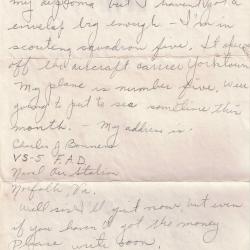 my diploma but I haven't got a
envelop big enough - I'm in
scouting squadron five. It
off the aircraft carrier Yorktown
My plane is number five, were
going to put to sea sometime this
month. - My address is.
Charles J
VS-5 F.A.D.
Naval Air Station
Norfolk Va.
Well sis I'll quit now but even
if you haven't got the money
Please write soon,